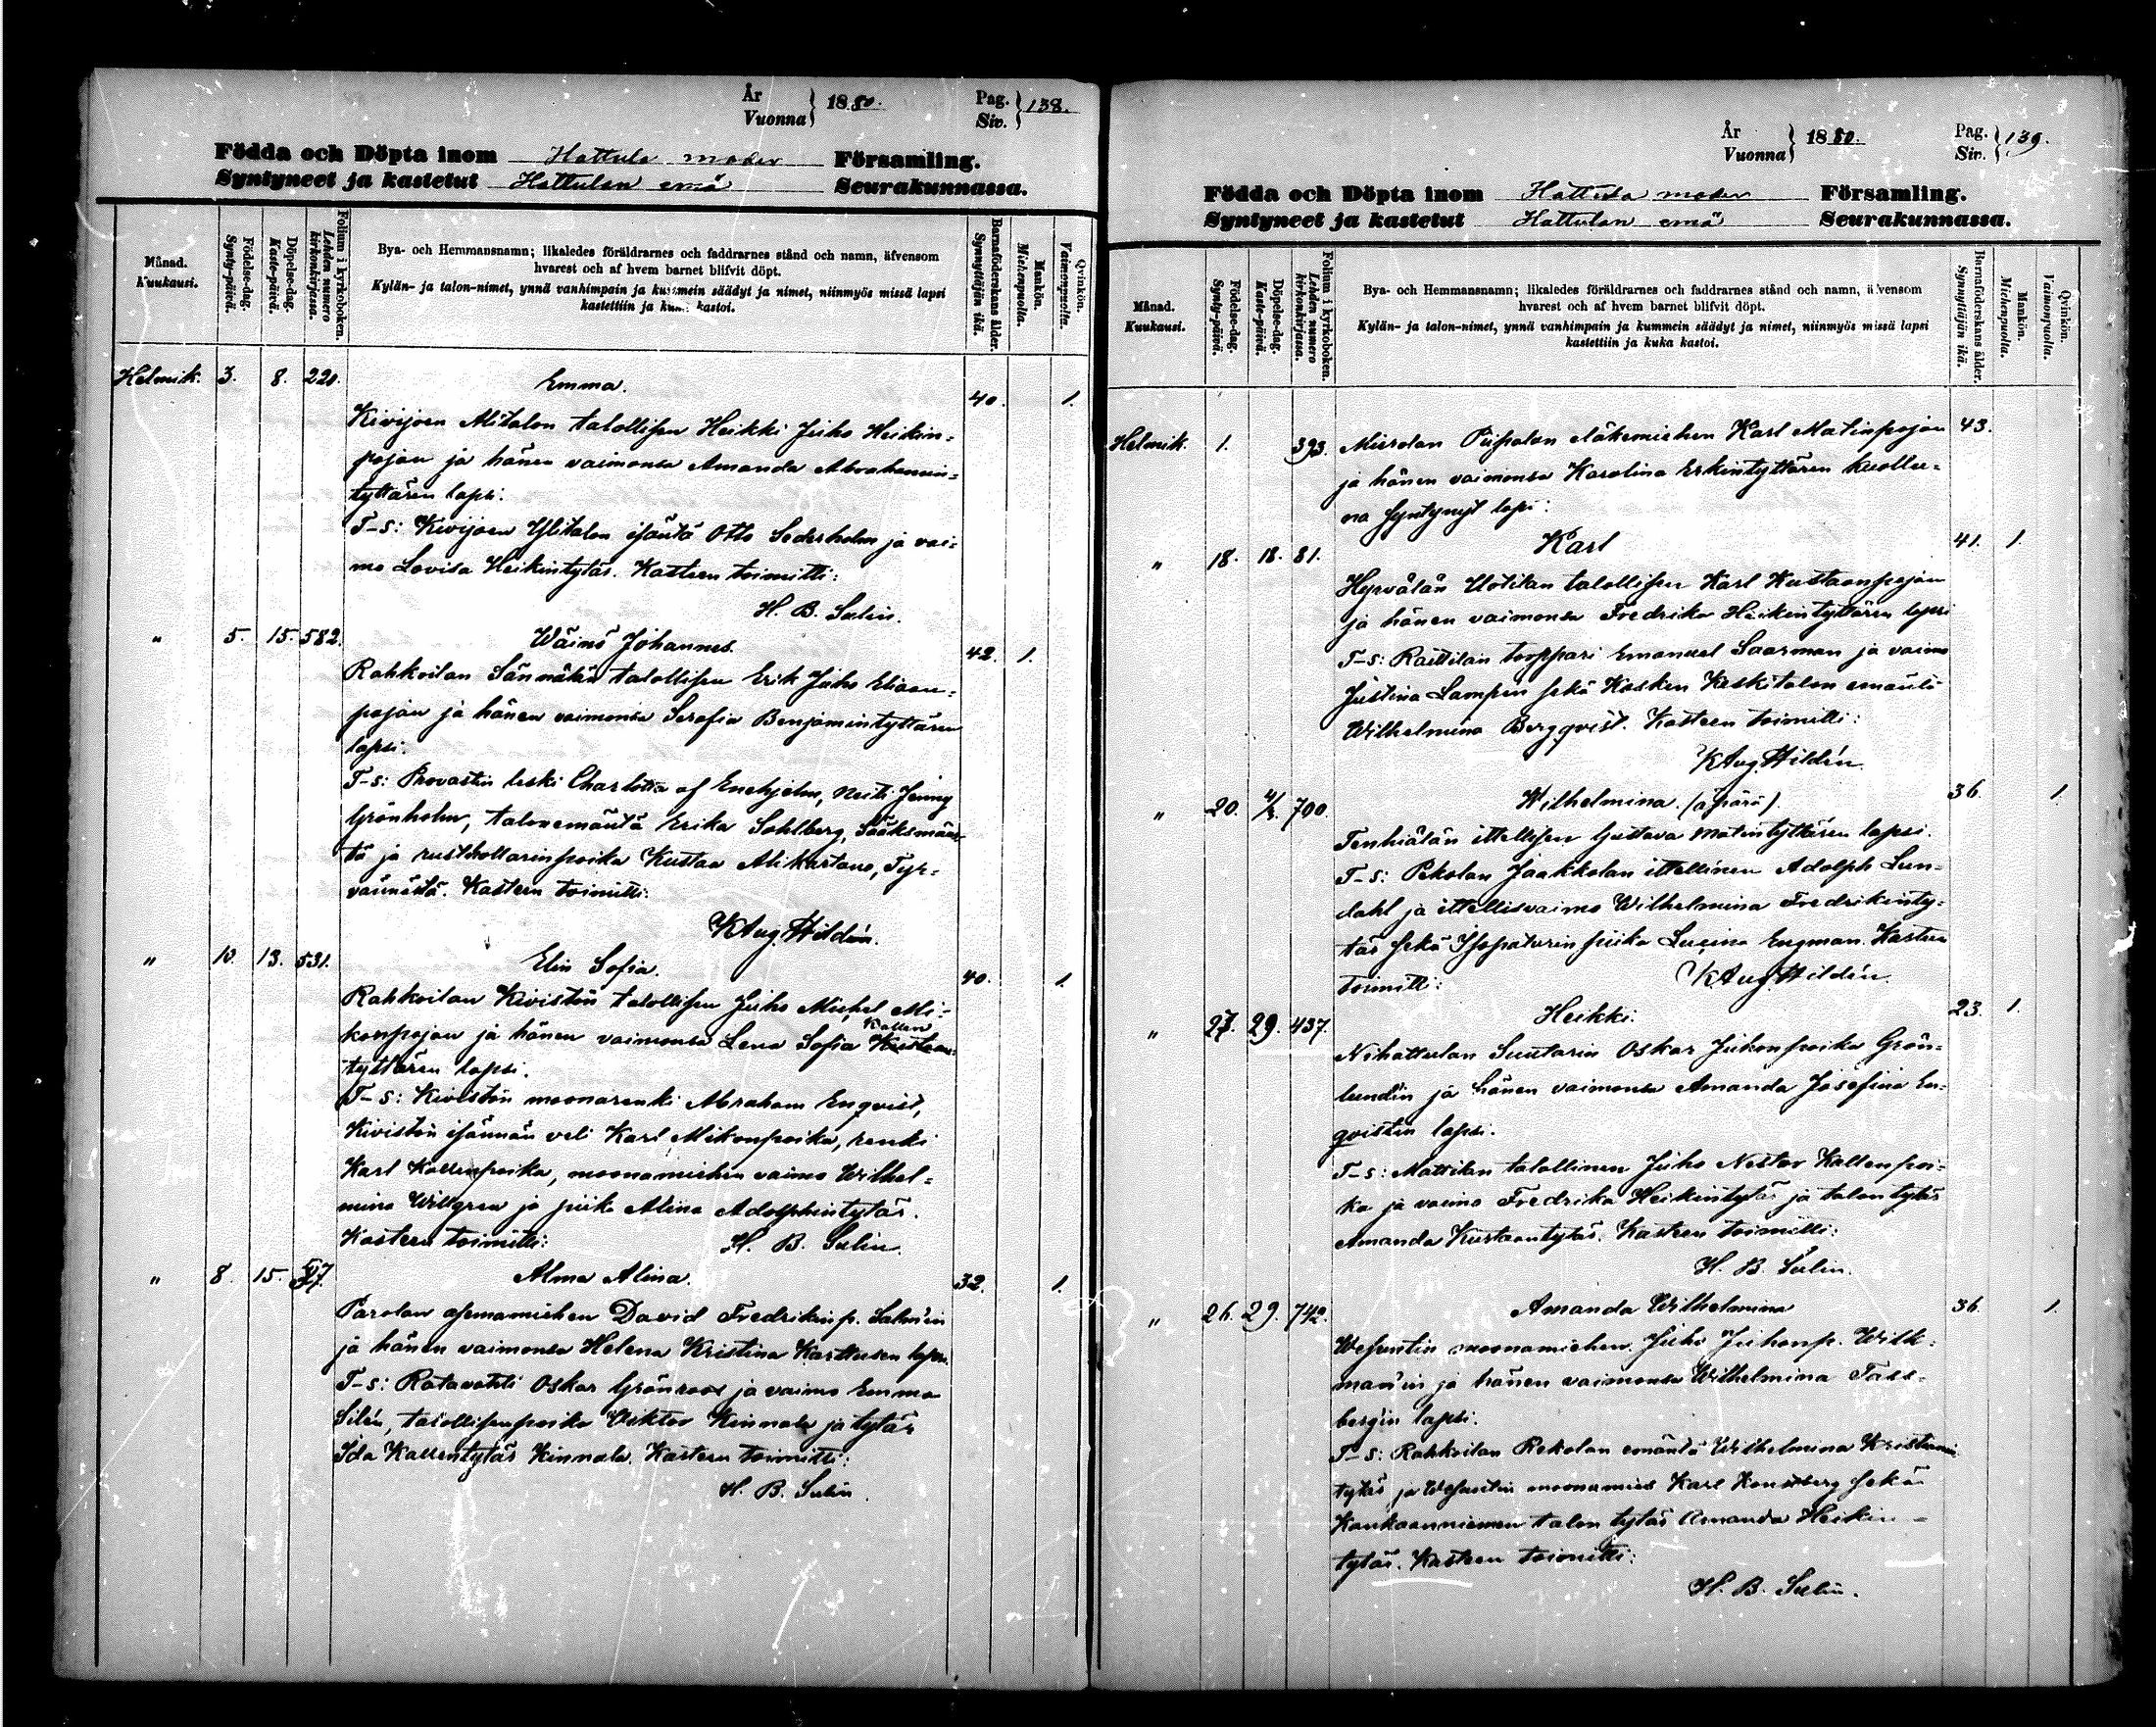 År
Vuonna } 1880.
Pag.
Siv. } 138.
Födda och Döpta inom Hattula moder Församling.
Syntyneet ja kastetut Hattulan emä Seurakunnassa.
Månad.
Kuukausi.
Födelse-dag.
Synty-päivä.
Döpelse-dag.
Kaste-päivä.
Folium i kyrkoboken.
Lehden numero kirkonkirjassa.
Bya- och Hemmansnamn; likaledes föräldrarnes och faddrarnes stånd och namn, äfvensom
hvarest och af hvem barnet blifvit döpt.
Kylän- ja talon-nimet, ynnä vanhimpain ja kummein säädyt ja nimet, niinmyös missä lapsi
kastettiin ja kuka kastoi.
Barnaföderskans ålder.
Synnyttäjän ikä.
Mankön.
Miehenpuolta.
Qvinkön.
Vaimonpuolta.
Helmik. 3. 8. 220. Emma. 40. 1.
Kivijoen Alitalon talollisen Heikki Juho Heikin-
pojan ja hänen vaimonsa Amanda Abrahamin-
tyttären lapsi.
T-s: Kivijoen Ylitalon isäntä Otto Sederholm ja vai-
mo Lovisa Heikintytär. Kasteen toimitti:
H. B. Salin.
" 5. 15. 582. Wäinö Johannes. 42. 1.
Rahkoilan talollisen Erik Juho Eliaan-
pojan ja hänen vaimonsa Serafia Benjamintyttären
lapsi.
T-s: Provastin leski Charlotta af Enehjelm, Neiti Jenny
Grönholm, talonemäntä Erika Sohlberg, Sääksmäel-
tä ja rusthollarinpoika Kustaa Alikartano, Tyr-
vännöstä. Kasteen toimitti:
K Aug. Hildén.
" 10. 13. 531. Elin Sofia. 40. 1.
Rahkoilan Kivistön talollisen Juho Michel Mi-
konpojan ja hänen vaimonsa Lena Sofia Kustaan Kallen
tyttären lapsi.
T-s: Kivistön moonarenki Abraham Enqvist,
Kivistön isännän veli Karl Mikonpoika, renki
Karl Kallenpoika, moonamiehen vaimo Wilhel-
mina Willgren ja piika Alina Adolphintytär.
Kasteen toimitti: H. B. Salin.
" 8. 15. Alma Alina. 32. 1.
Parolan asemamiehen David Fredrikinp. Salmin
ja hänen vaimonsa Helena Kristina Karttusen lapsi.
T-s: Ratavahti Oskar Grönroos ja vaimo Emma
Silén, talollisenpoika Viktor Kinnala ja tytär
Ida Kallentytär Kinnala. Kasteen toimitti:
H. B. Salin.
År
Vuonna } 1880.
Pag.
Siv. } 139.
Födda och Döpta inom Hattula moder Församling.
Syntyneet ja kastetut Hattulan emä Seurakunnassa.
Månad.
Kuukausi.
Födelse-dag.
Synty-päivä.
Döpelse-dag.
Kaste-päivä.
Folium i kyrkoboken.
Lehden numero kirkonkirjassa.
Bya- och Hemmansnamn; likaledes föräldrarnes och faddrarnes stånd och namn, äfvensom
hvarest och af hvem barnet blifvit döpt.
Kylän- ja talon-nimet, ynnä vanhimpain ja kummein säädyt ja nimet, niinmyös missä lapsi
kastettiin ja kuka kastoi.
Barnaföderskans ålder.
Synnyttäjän ikä.
Mankön.
Miehenpuolta.
Qvinkön.
Vaimonpuolta.
Helmik. 1. 393. Mierolan Piipolan eläkemiehen Karl Matinpojan 43.
ja hänen vaimonsa Karolina Erkintyttären kuollee-
na syntynyt lapsi.
" 18. 18. 81. Karl 41. 1.
Hyrvälän Uotilan talollisen Karl Kustaanpojan
ja hänen vaimonsa Fredrika Heikintyttären lapsi
T-s: Raittilan torppari Emanuel Saarman ja vaimo
Justina Lampen sekä Kosken Keskitalon emäntä
Wilhelmina Bergqvist. Kasteen toimitti:
K Aug. Hildén.
" 20. 4/4. 700. Wilhelmina. (äpärä). 36. 1.
Tenhiälän ittellisen Gustava Matintyttären lapsi.
T-s: Pekolan Jaakkolan ittellinen Adolph Lun-
dahl ja ittellisvaimo Wilhelmina Fredrikinty-
tär sekä piika Lucina Engman. Kasteen
toimitti: K Aug. Hildén.
" 27. 29. 437. Heikki. 23. 1.
Nihattulan Suutarin Oskar Juhonpoika Grön-
lundin ja hänen vaimonsa Amanda Josefina En-
qvistin lapsi.
T-s: Mattilan talollinen Juho Nestor Kallenpoi-
ka ja vaimo Fredrika Heikintytär ja talon tytär
Amanda Kustaantytär. Kasteen toimitti:
H. B. Salin.
" 26. 29. 742. Amanda Wilhelmina 36. 1.
Wesuntin moonamiehen Juho Juhonp. Wilk-
man'in ja hänen vaimonsa Wilhelmina Tass-
bergin lapsi.
T-s: Rahkoilan Rekolan emäntä Wilhelmina Kristianin
tytär ja Wesuntin moonamies Karl Kronberg sekä
Kankaanniemen talon tytär Amanda Heikin-
tytär. Kasteen toimitti:
H. B. Salin.